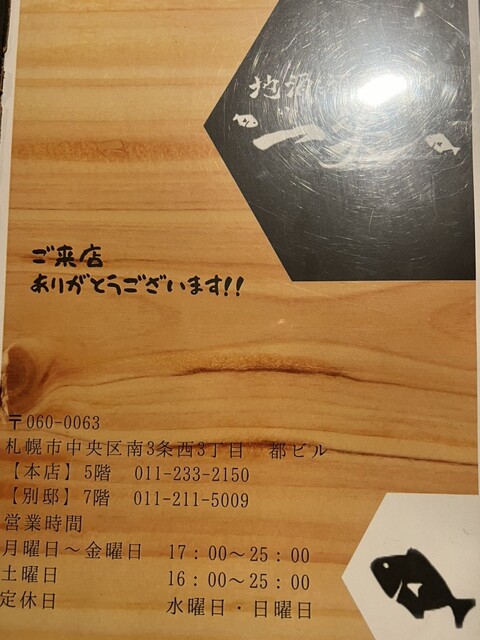 地酒
一
ご来店
ありがとうございます!!
〒060-0063
札幌市中央区南3条西3丁目 都ビル
【本店】5階 011-233-2150
【別邸】7階 011-211-5009
営業時間
月曜日～金曜日 17：00～25：00
土曜日 16：00～25：00
定休日 水曜日・日曜日